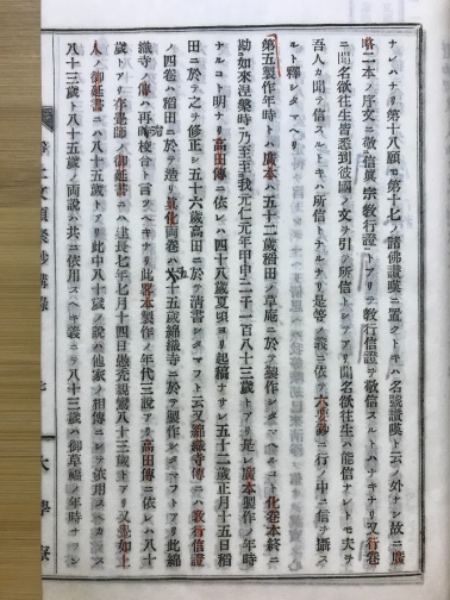 ナレハナリ第十八願モ第十七ノ諸佛讃嘆ニ置クトキハ名號讃嘆ト云ノ外ナシ故ニ廣
略二本ノ序文ニ敬信眞宗敎行證トアリテ敎行信證ヲ敬信スルトハナキナリ又行卷
ニ聞名欲往生皆悉到彼國ノ文ヲ引テ所信トシテアリ聞名欲往生ハ能信ナレトモ夫ヲ
吾人カ聞テ信スルトキハ所信トナルナリ是等ノ義ニ依テ六要鈔ニ行ノ中ニ信ヲ攝ス
ルト釋シタマヘリ
第五製作年時トハ廣本ハ五十二歲稻田ノ草庵ニ於テ製作シタマヘルコト化卷本終ニ
勘如來涅槃時乃至至我元仁元年甲申二千一百八十三歲トアリ是レ廣本製作ノ年時
ナルコト明ナリ高田傳ニ依レハ四十八歲夏頃ヨリ起稿ナサレ五十二歲正月十五日稻
田ニ於テ之ヲ修正シ五十六歲高田ニ於テ淸書シタマフト云又錦織寺傳ニハ敎行信證
ノ四卷ハ稻田ニ於テ造リ眞化兩卷ハ六十五歲錦織寺ニ於テ製作シタマフトアリ此錦
織寺ノ傳ハ再時校合ト言ツヘキナリ此略本製作ノ年代三說アリ高田傳ニ依レハ八十
歲トアリ存覺師ノ御延書ニハ建長七年七月十四日愚禿親鸞八十三歲トアリ又蓮如上
人ノ御延書ニハ八十五歲トアリ此中八十歲ノ說ハ他家ノ相傳ニシテ依用スヘカラス
八十三歲ト八十五歲ノ兩說ハ共ニ依用スヘキ義ニテ八十三歲ハ御草稿ノ年時ナラン
文類聚鈔講錄
七
大學寮